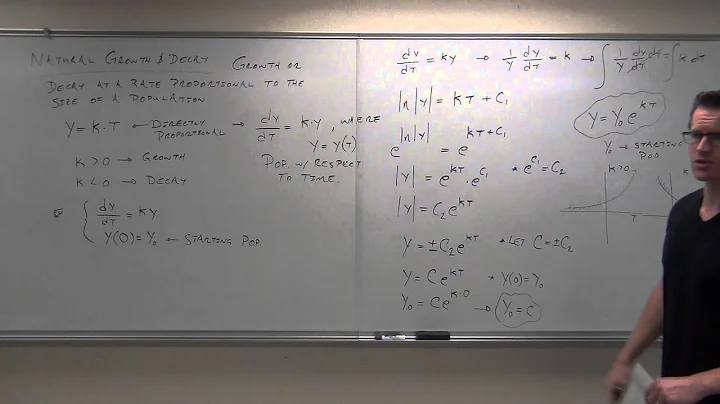 NATURAL GROWTH & DECAY GROWTH OR
DECAY AT A RATE PROPORTIONAL TO THE
SIZE OF A POPULATION
Y = K·T ← DIRECTLY PROPORTIONAL → dy/dT = K·Y, WHERE
Y = Y(T)
K > 0 → GROWTH
POP. W/ RESPECT
TO TIME.
K < 0 → DECAY
dy/dT = KY
Y(0) = Y₀ ← STARTING POP.
dy/dT = KY → 1/Y dy/dT = K → ∫ 1/Y dy/dT dT = ∫ K dT
ln|Y| = KT + C₁
e^ln|Y| = e^KT+C₁
|Y| = e^KT · e^C₁ * e^C₁ = C₂
|Y| = C₂e^KT
Y = ±C₂e^KT * LET C = ±C₂
Y = Ce^KT * Y(0) = Y₀
Y₀ = Ce^K·0 → Y₀ = C
Y = Y₀e^KT
Y₀ → STARTING
POP.
K>0
T